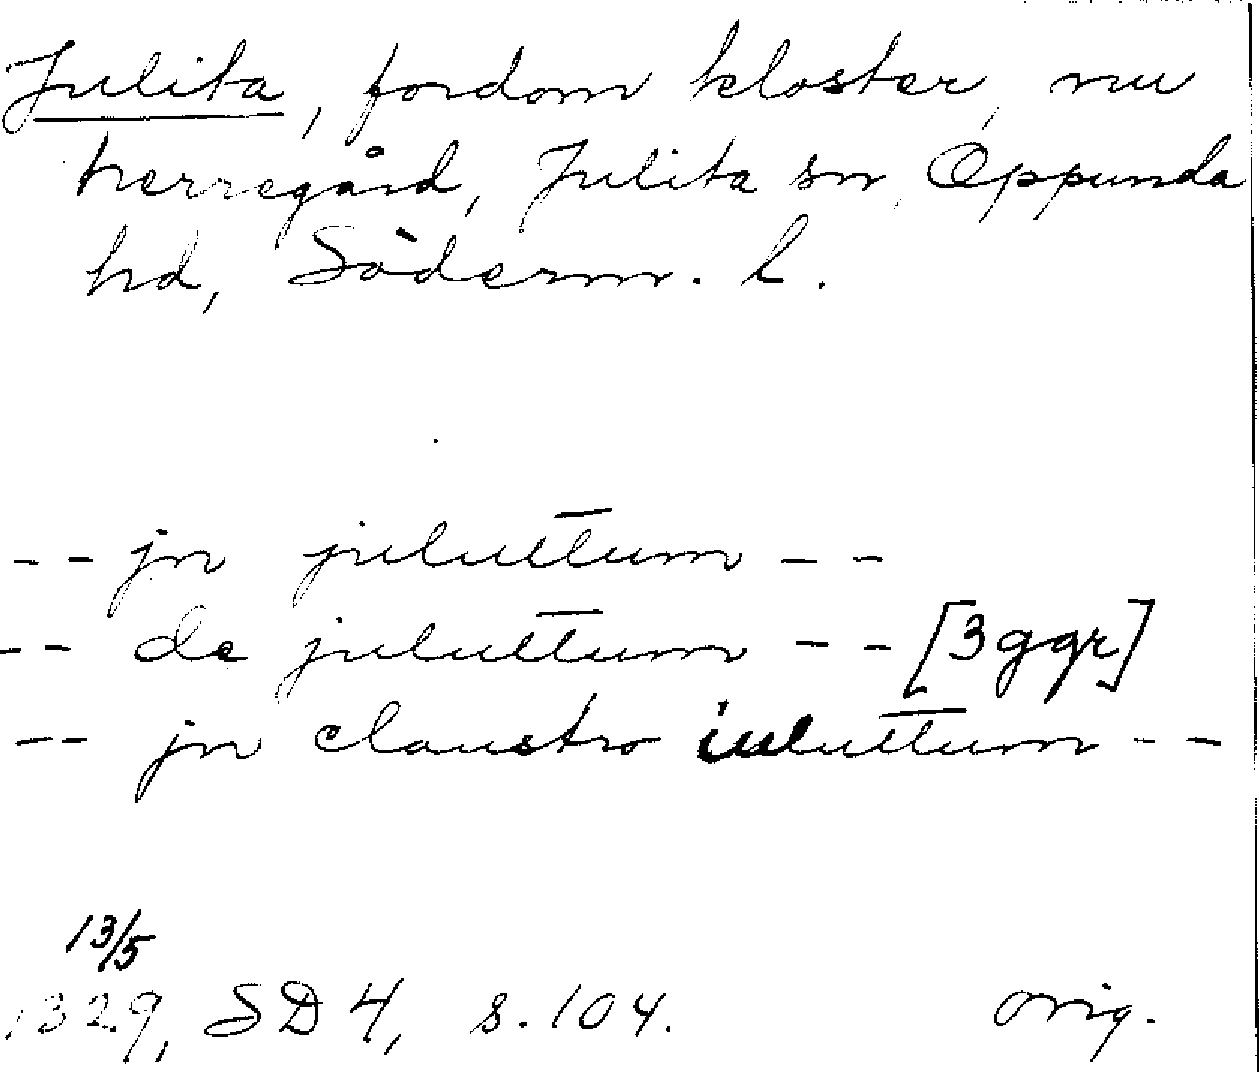 Julita, fordom kloster, nu
herregård, Julita sn, Oppunda
hd, Söderm. l.
-- jn juluttum --
-- de juluttum -- [3 ggr]
-- jn claustro iuluttum --
13/5
1329, SD 4, s. 104. orig.